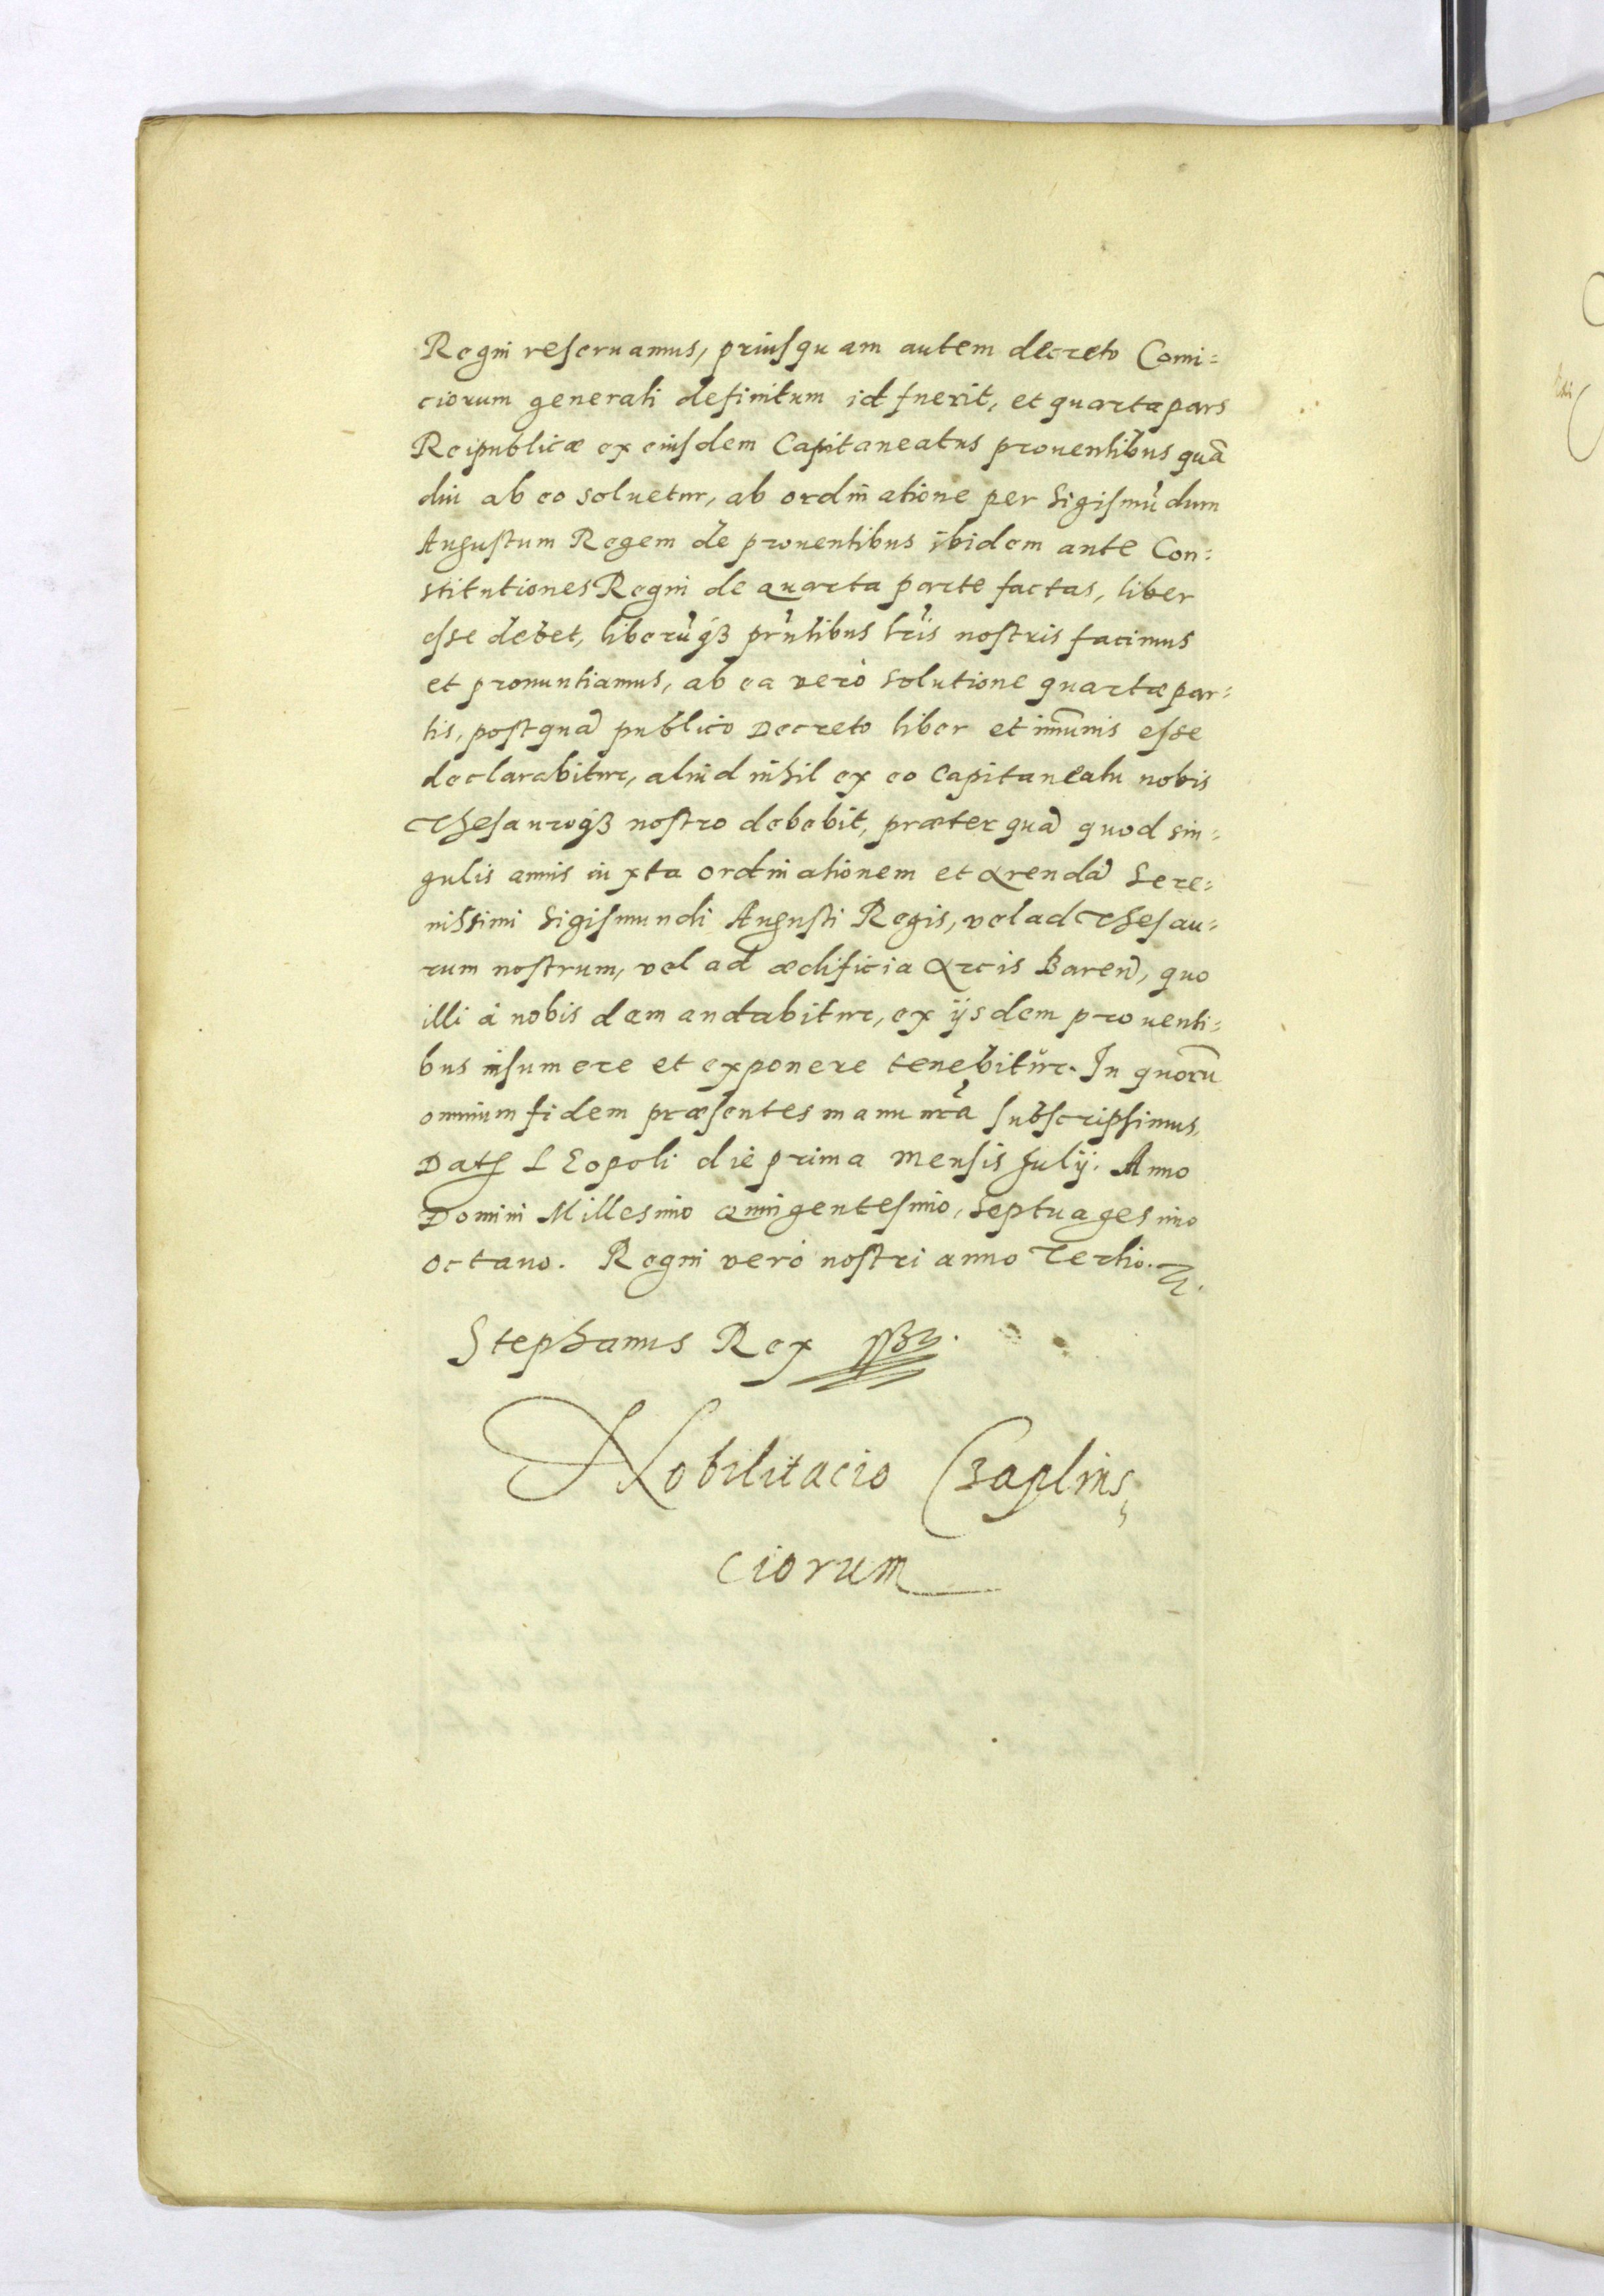 Regni reseruamus, priusquam autem decreto Comi=
ciorum generali definitum id fuerit, et quarta pars
Reipublicæ ex eiusdem Capitaneatus prouentibus quã
diu ab eo soluetur, ab ordinatione per Sigismũdum
Augustum Regem de prouentibus ibidem ante Con=
stitutiones Regni de quarta parte factas, liber
esse debet, liberũqȝ pñtibus lr̃is nostris facimus
et pronuntiamus, ab ea verò solutione quartæ par=
tis, postquã publico Decreto liber et imũnis esse
declarabitur, aliud nihil ex eo Capitaneatu nobis
Thesauroqȝ nostro debebit, præterquã quod sin=
gulis annis iuxta ordinationem et Arendã Sere=
nissimi Sigismundi Augusti Regis, vel ad Thesau=
rum nostrum, vel ad ædificia Arcis Bareñ, quo
illi à nobis demandabitur, ex ijsdem prouenti=
bus insumere et exponere tenebitur. In quorũ
omnium fidem præsentes manu nr̃a subscripsimus.
Datꝭ LEopoli die prima mensis Julij. Anno
Domini Millesimo Quingentesimo, Septuagesimo
octauo. Regni verò nostri anno Tertio.
Stephanus Rex
Nobilitacio Czaplins,
ciorum